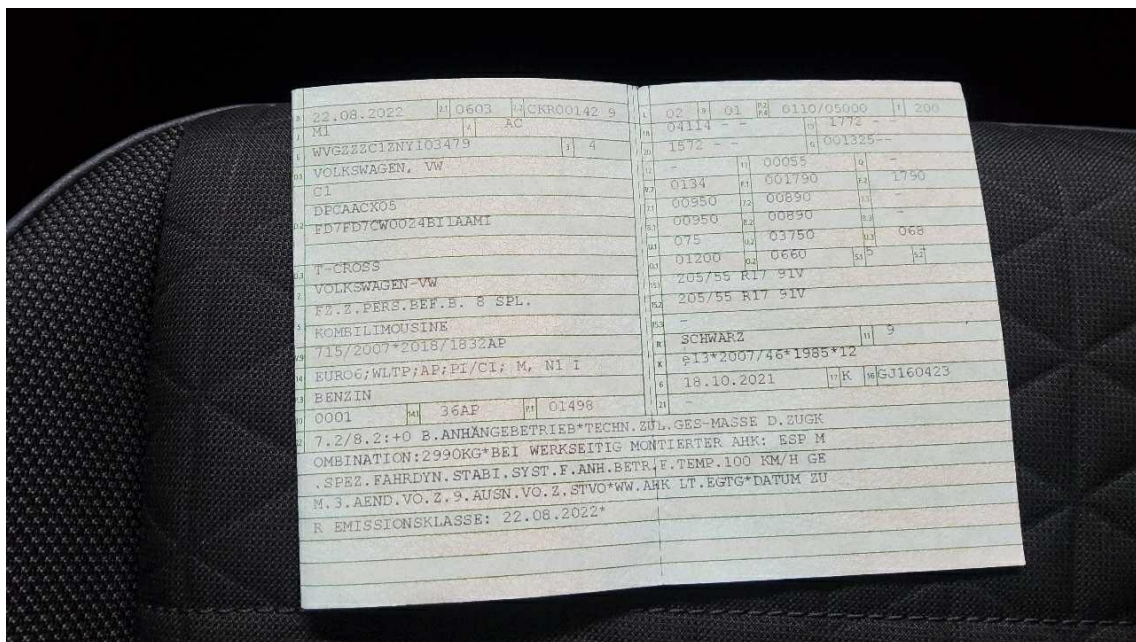 B 22.08.2022 2.1 0603 2.2 CKR00142 9
J M1 4 AC
E WVGZZZC1ZNY103479 3 4
D.1 VOLKSWAGEN, VW
C1
DPCAACX05
D.2 FD7FD7CW0024BI1AAMI
D.3 T-CROSS
2 VOLKSWAGEN-VW
FZ.Z.PERS.BEF.B. 8 SPL.
5 KOMBILIMOUSINE
V.9 715/2007*2018/1832AP
14 EURO6;WLTP;AP;PI/CI; M, N1 I
P.3 BENZIN
10 0001 14.1 36AP P.1 01498
L 02 9 01 P.2 P.4 0110/05000 T 200
18 04114 - - 19 1772 - -
20 1572 - - G 001325--
12 - 13 00055 Q -
V.7 0134 F.1 001790 F.2 1790
7.1 00950 7.2 00890 7.3 -
8.1 00950 8.2 00890 8.3 -
U.1 075 U.2 03750 U.3 068
O.1 01200 O.2 0660 S.1 5 S.2 -
15.1 205/55 R17 91V
15.2 205/55 R17 91V
15.3 -
R SCHWARZ 11 9
K e13*2007/46*1985*12
6 18.10.2021 17 K 16 GJ160423
21 -
22 7.2/8.2:+0 B.ANHÄNGEBETRIEB*TECHN.ZUL.GES-MASSE D.ZUGK
OMBINATION:2990KG*BEI WERKSEITIG MONTIERTER AHK: ESP M
.SPEZ.FAHRDYN.STABI.SYST.F.ANH.BETR.F.TEMP.100 KM/H GE
M.3.AEND.VO.Z.9.AUSN.VO.Z.STVO*WW.AHK LT.EGTG*DATUM ZU
R EMISSIONSKLASSE: 22.08.2022*